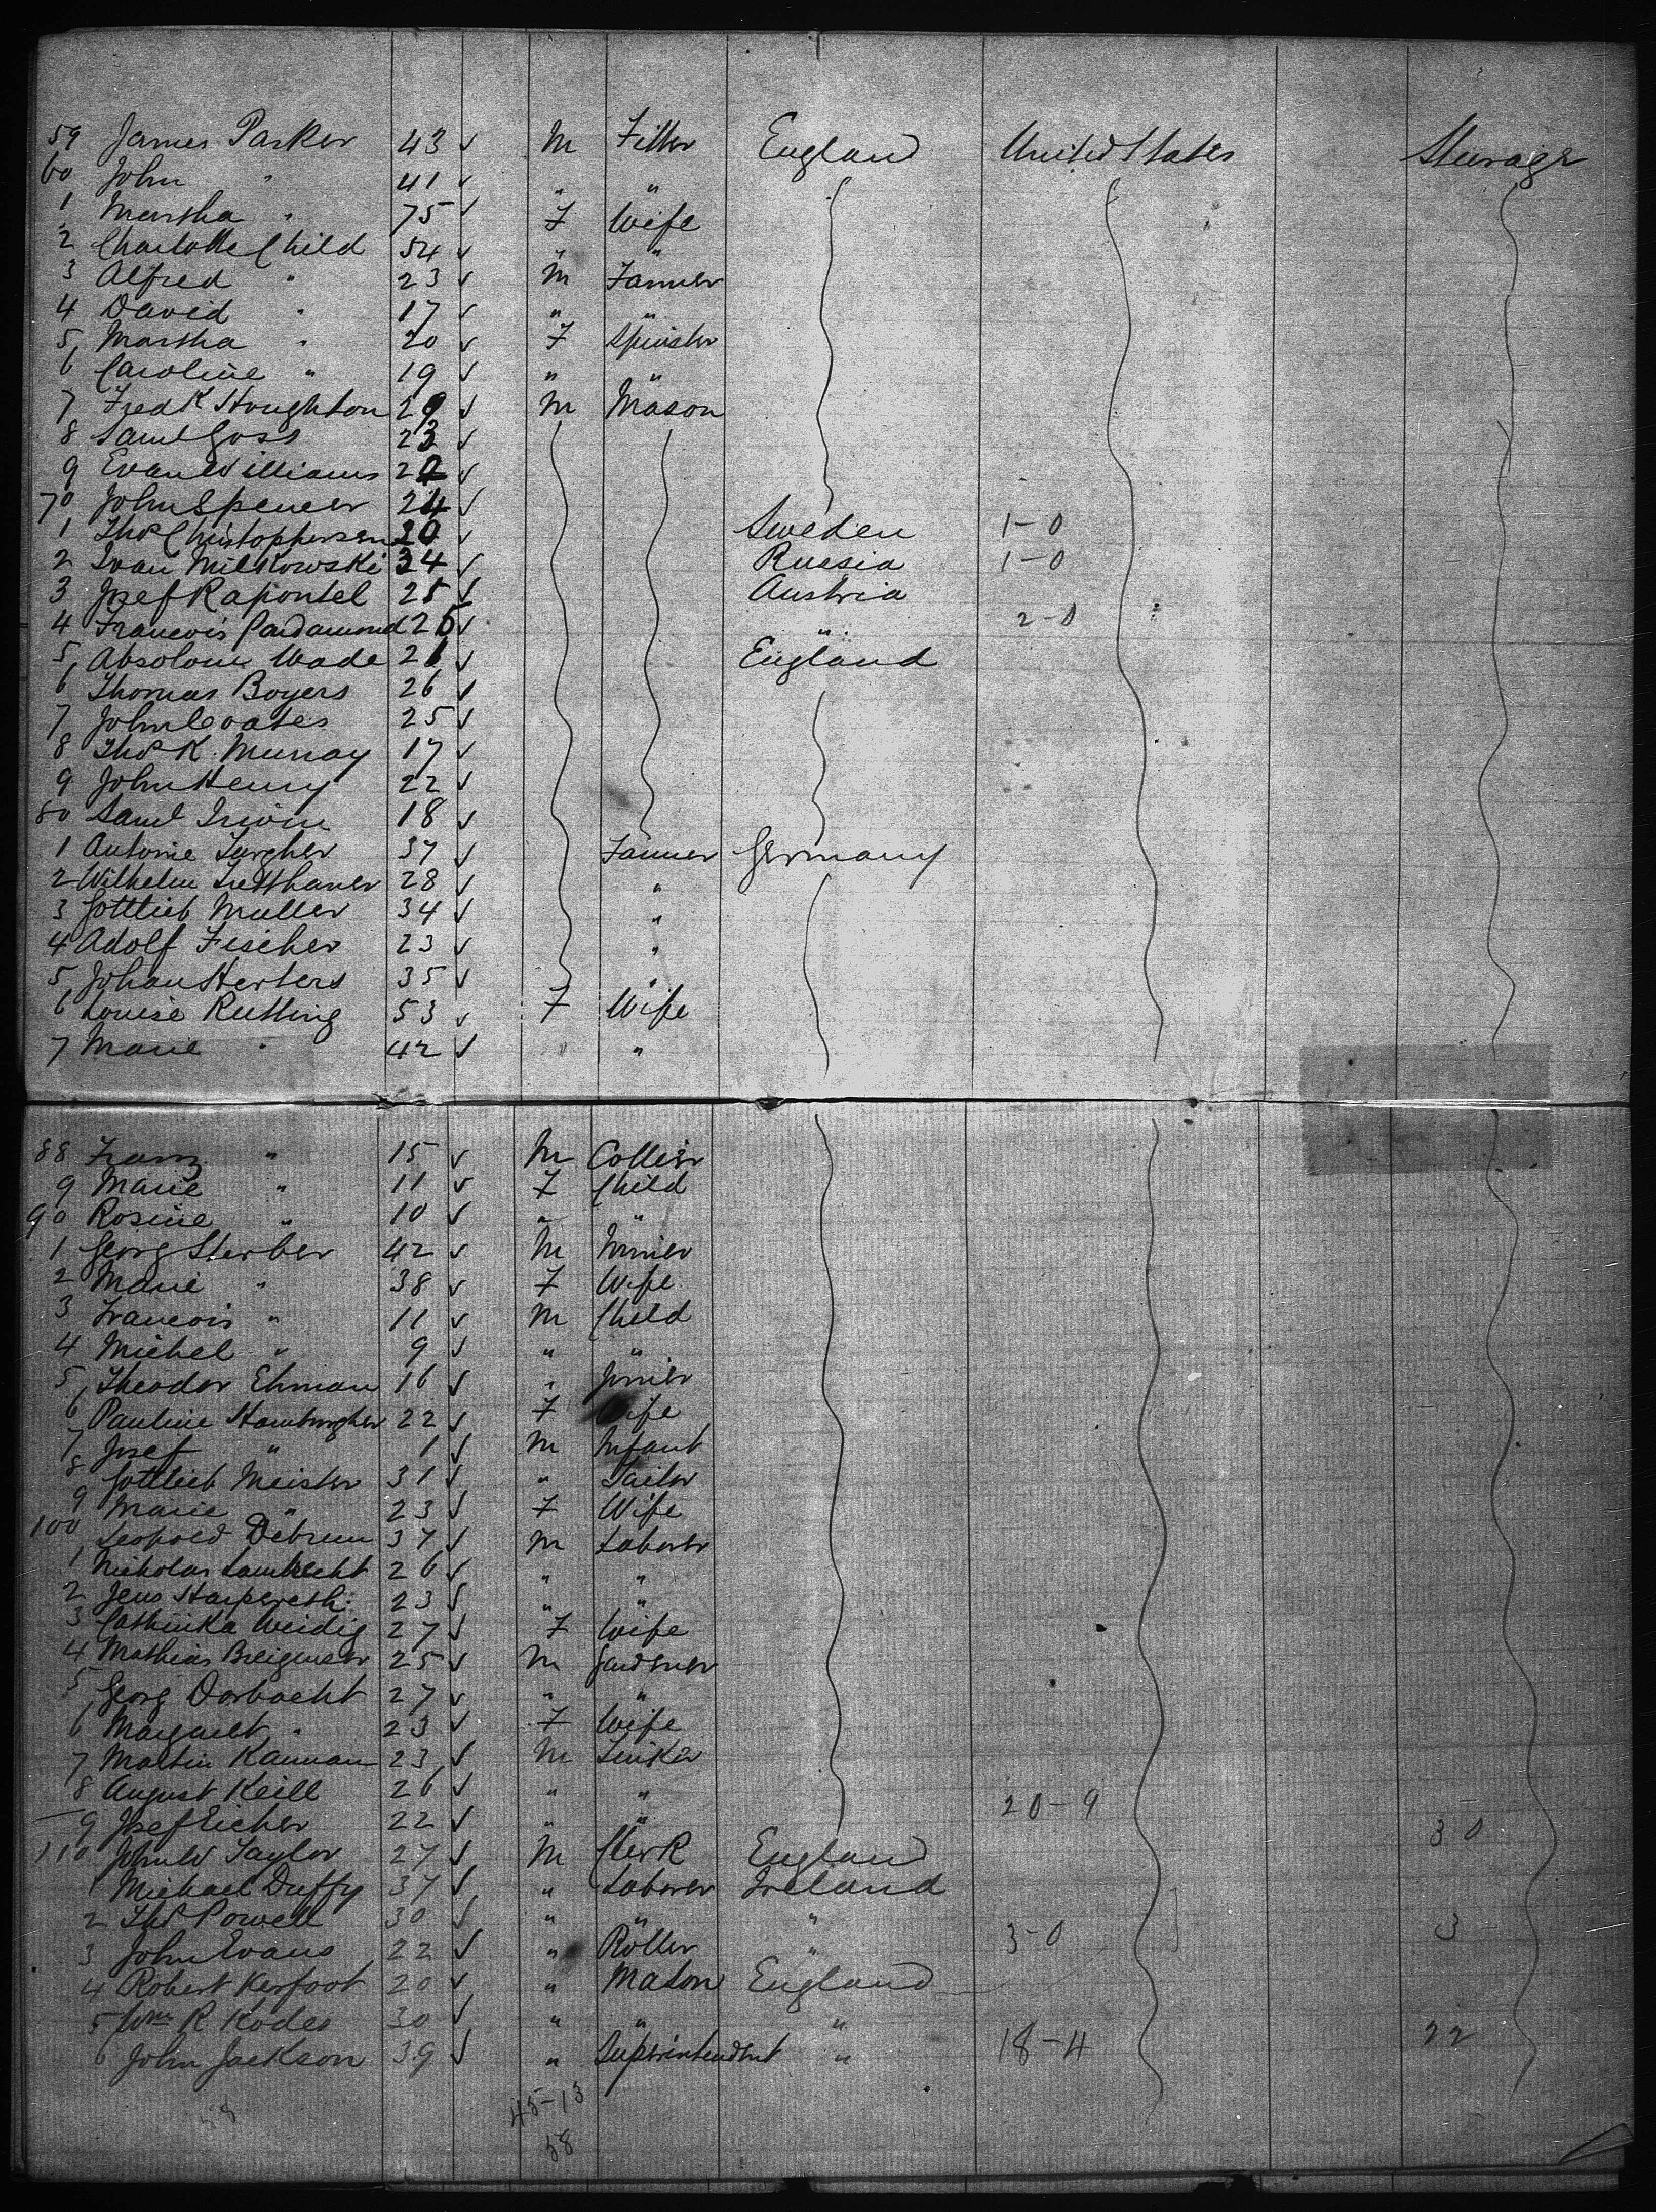 59 James Parker 43 ✓ M Fitter England United States Steerage
60 John " 41 ✓ " "
1 Martha " 75 ✓ F Wife
2 Charlotte Child 54 ✓ " "
3 Alfred " 23 ✓ M Farmer
4 David " 17 ✓ " "
5 Martha " 20 ✓ F Spinster
6 Caroline " 19 ✓ " "
7 Fredk Houghton 29 ✓ M Mason
8 Saml Goss 23 ✓
9 Evan Williams 22 ✓
70 John Spencer 24 ✓
1 Thos Christophersen 20 ✓ Sweden 1-0
2 Ivan Milkowski 34 ✓ Russia 1-0
3 Josef Rapontel 25 ✓ Austria
4 Francois 25 ✓ " 2-0
5 Absolom Wade 21 ✓ England
6 Thomas Boyers 26 ✓
7 John Coates 25 ✓
8 Thos K. Murray 17 ✓
9 John Henry 22 ✓
80 Saml Irwin 18 ✓
1 Antonie 37 ✓ Farmer Germany
2 Wilhelm 28 ✓ "
3 Gottlieb Muller 34 ✓ "
4 Adolf Fischer 23 ✓ "
5 Johan Herters 35 ✓ "
6 Louise Rutting 53 ✓ F Wife
7 Marie " 42 ✓ " "
88 Franz " 15 ✓ M Collier
9 Marie " 11 ✓ F Child
90 Rosine " 10 ✓ " "
1 Georg Sterber 42 ✓ M
2 Marie " 38 ✓ F Wife
3 Francois " 11 ✓ M Child
4 Michel " 9 ✓ " "
5 Theodor Ehman 16 ✓ "
6 Pauline Hamburgher 22 ✓ F Wife
7 Josef " 1 ✓ M Infant
8 Gottlieb Meister 31 ✓ " Tailor
9 Marie " 23 ✓ F Wife
100 Leopold Debrun 37 ✓ M Laborer
1 Nicholas Lambrecht 26 ✓ " "
2 Jens 23 ✓ " "
3 Cathinka Weidig 27 ✓ F Wife
4 Mathias 25 ✓ M Gardener
5 Georg Dorbacht 27 ✓ " "
6 Margaret " 23 ✓ F Wife
7 Martin Kauman 23 ✓ M
8 August Keill 26 ✓ " " 20-9
9 Josef Eicher 22 ✓ " " 30
110 John W Taylor 27 ✓ M Clerk England
1 Michael Duffy 37 ✓ " Laborer Ireland
2 Thos Powell 30 ✓ " " " 3
3 John Evans 22 ✓ " Roller " 3-0
4 Robert Kerfoot 20 ✓ " Mason England
5 Wm R Kodes 30 ✓ " " "
6 John Jackson 39 ✓ " Superintendent " 18-4 22
58 45-13
58